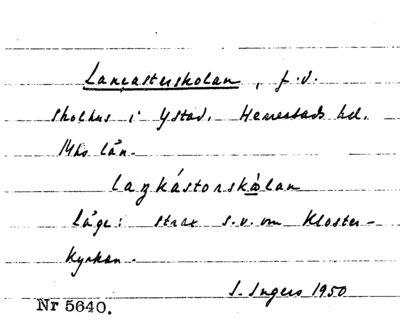 Lancasterskolan, f.d.
skolhus i Ystad. Herrestads hd.
Mhs län.
laŋkástorskålan
Läge: strax s.v. om Kloster-
kyrkan.
I. Ingers 1950
Nr 5640.